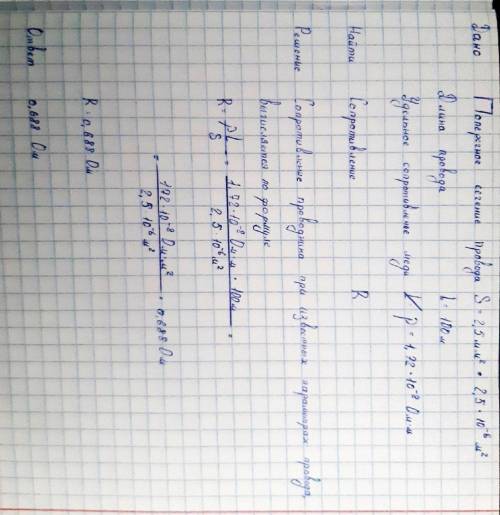 Дано Поперечное сечение провода S = 2,5 мм² = 2,5 · 10⁻⁶ м²
Длина провода L = 100 м
Удельное сопротивление меди ρ = 1,72 · 10⁻⁸ Ом·м
Найти Сопротивление R
Решение Сопротивление проводника при известных параметрах провода,
вычисляется по формуле
R = ρL/S = 1,72·10⁻⁸ Ом·м · 100м / 2,5·10⁻⁶ м² =
= 172·10⁻⁸ Ом·м² / 2,5·10⁻⁶ м² = 0,688 Ом
R = 0,688 Ом
Ответ 0,688 Ом